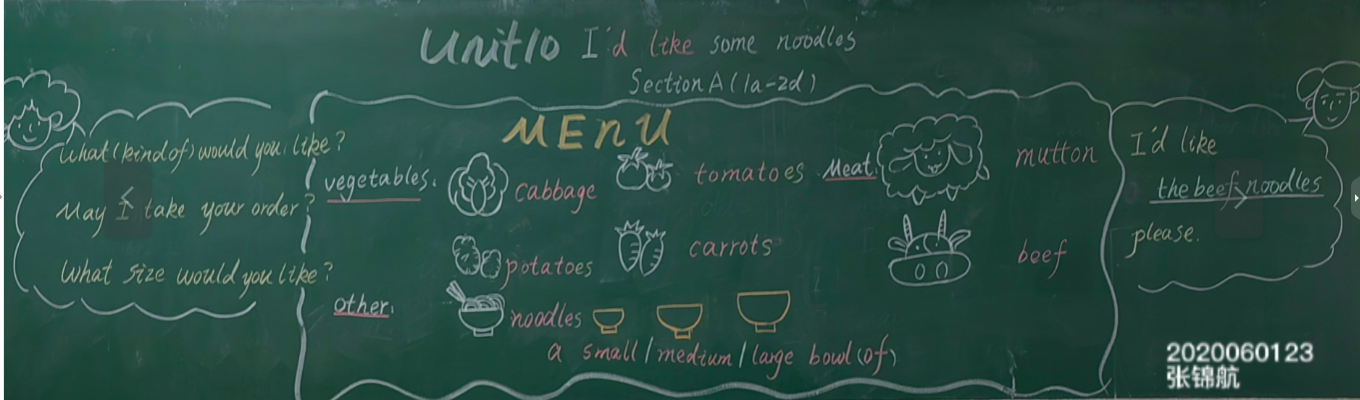 Unit10 I'd like some noodles
Section A (1a-2d)
What (kind of) would you like?
May I take your order?
What size would you like?
MENU
vegetables:
cabbage
tomatoes
potatoes
carrots
Meat:
mutton
beef
other:
noodles
a small/medium/large bowl (of)
I'd like
the beef noodles
please.
2020060123
张锦航